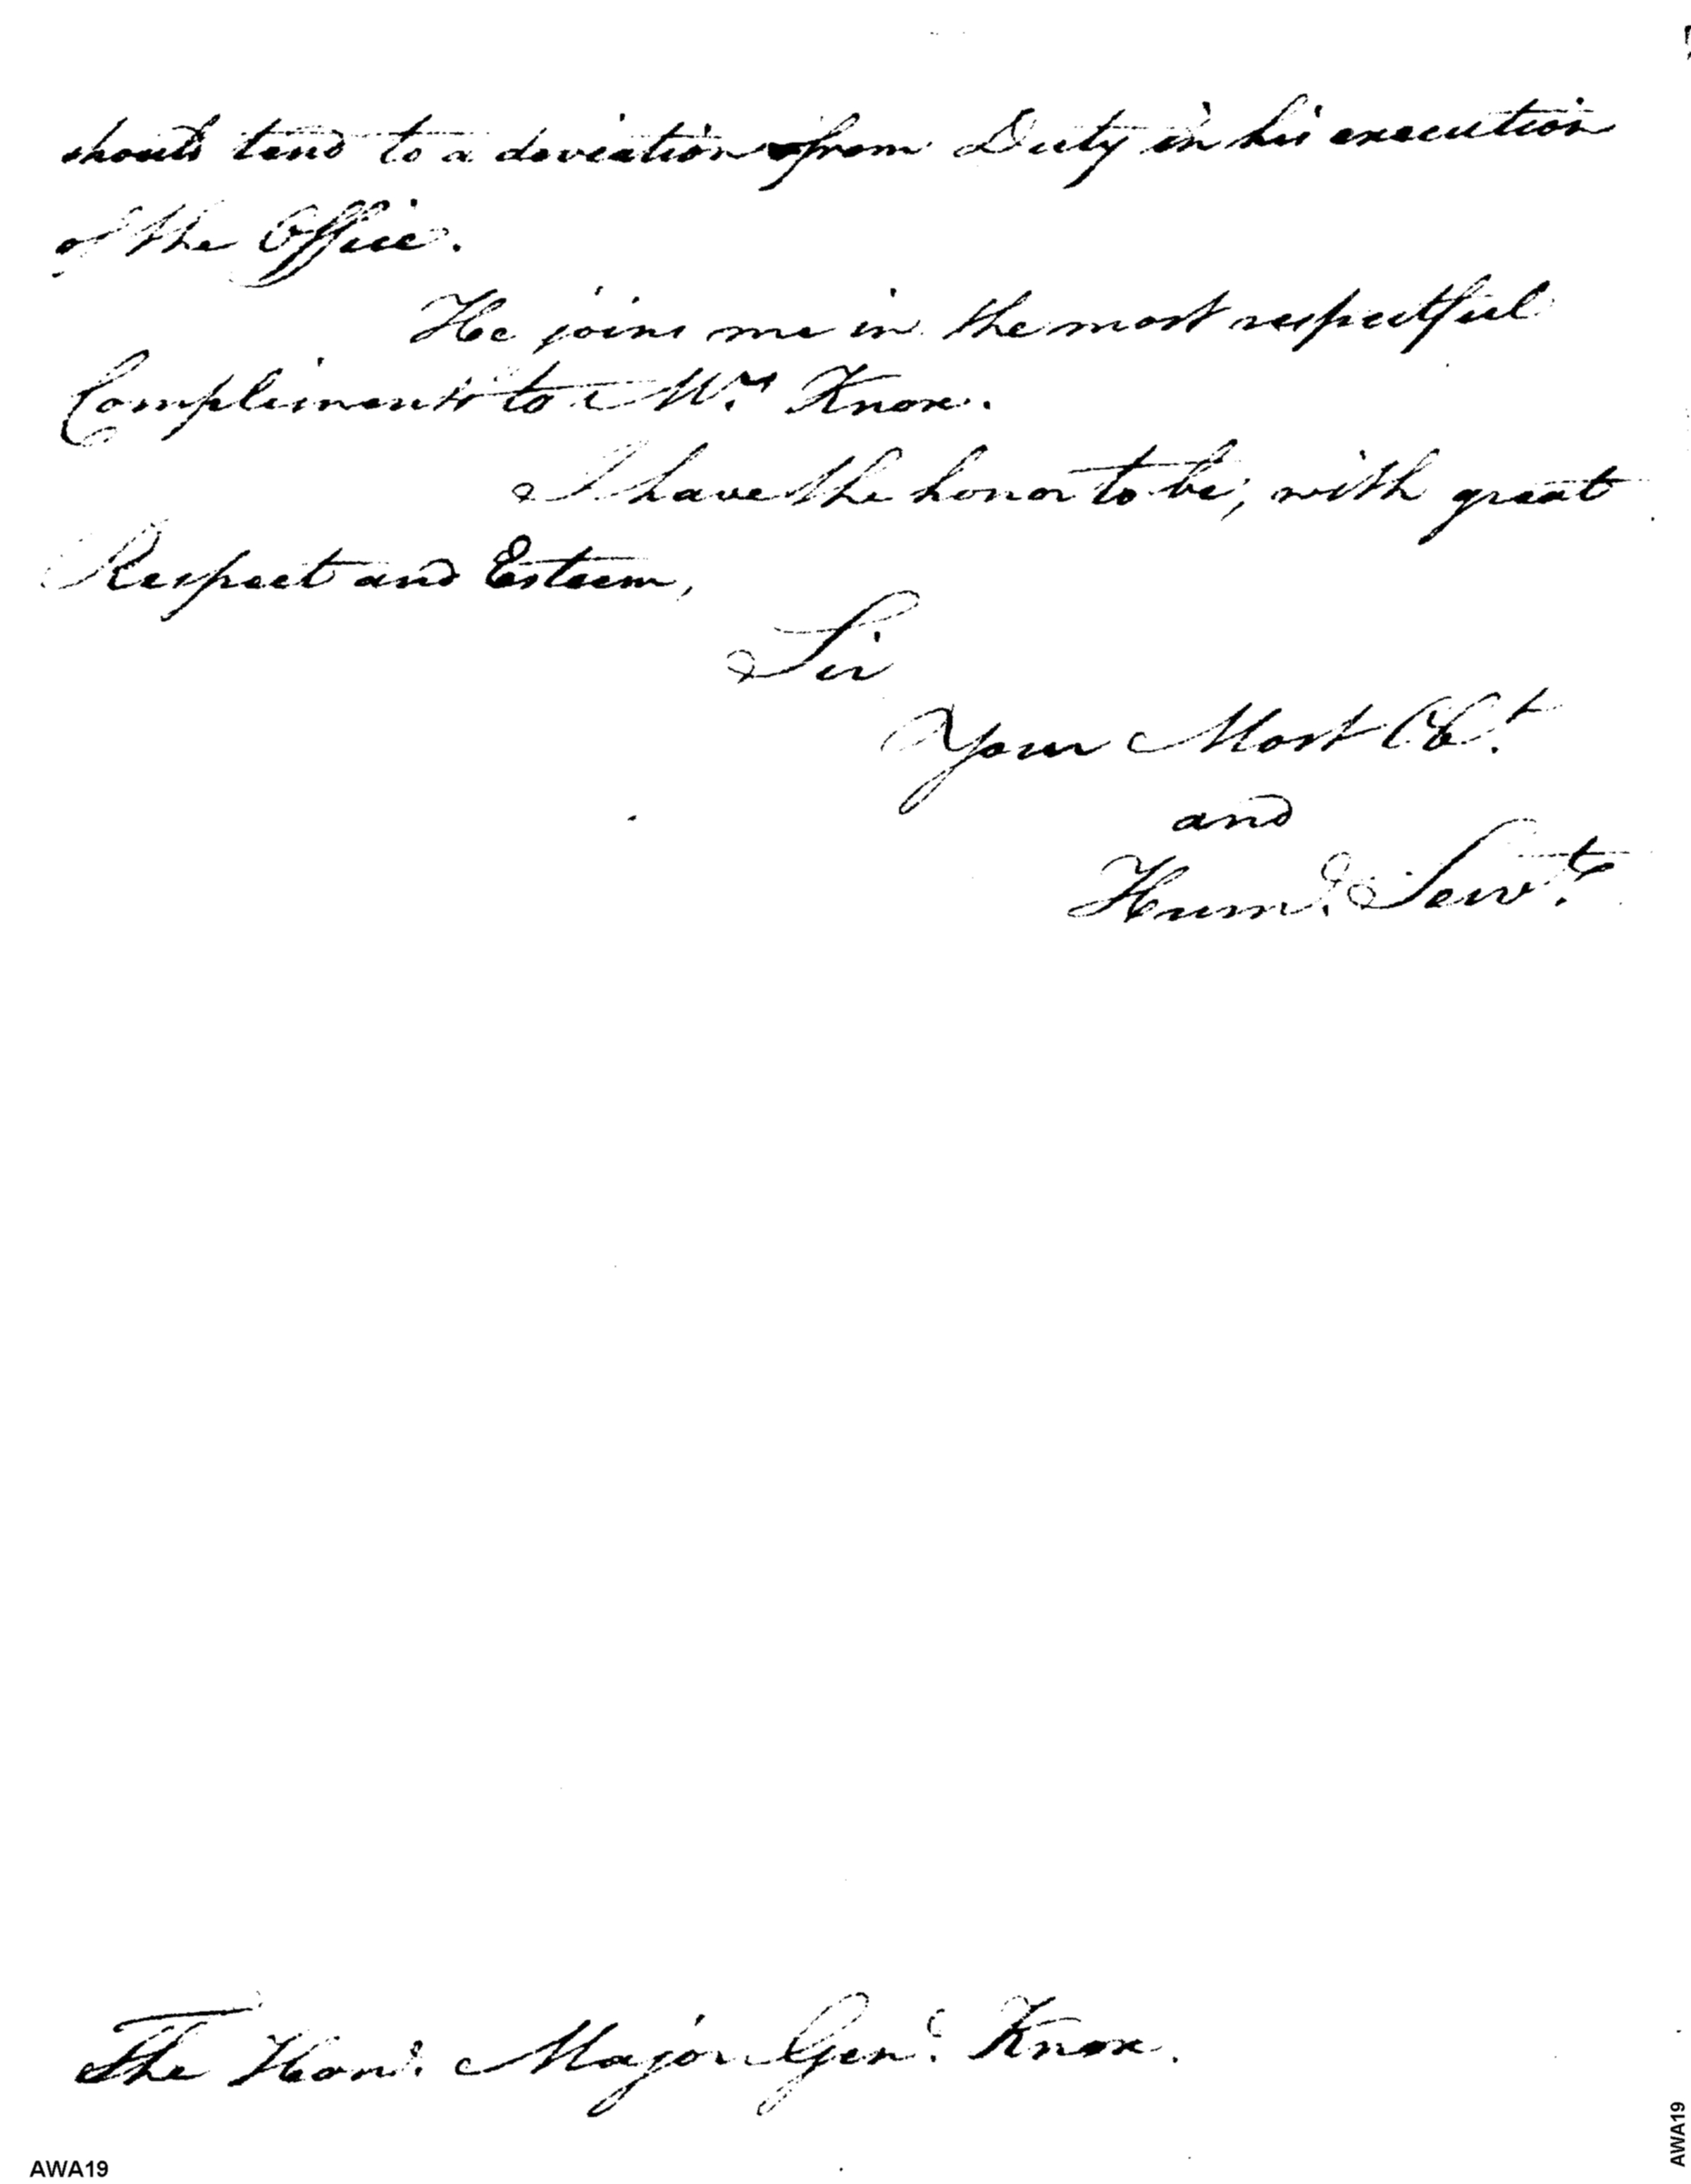 should tend to a deviation from Duty in his execution
of the Office.
He joins me in the most respectful
Compliments to Mrs Knox.
I have the honor to be, with great
Respect and Esteem,
Sir
Your Most Obt.
and
Hume. Servt.
The Hone. Major Genl. Knox.
AWA19
AWA19